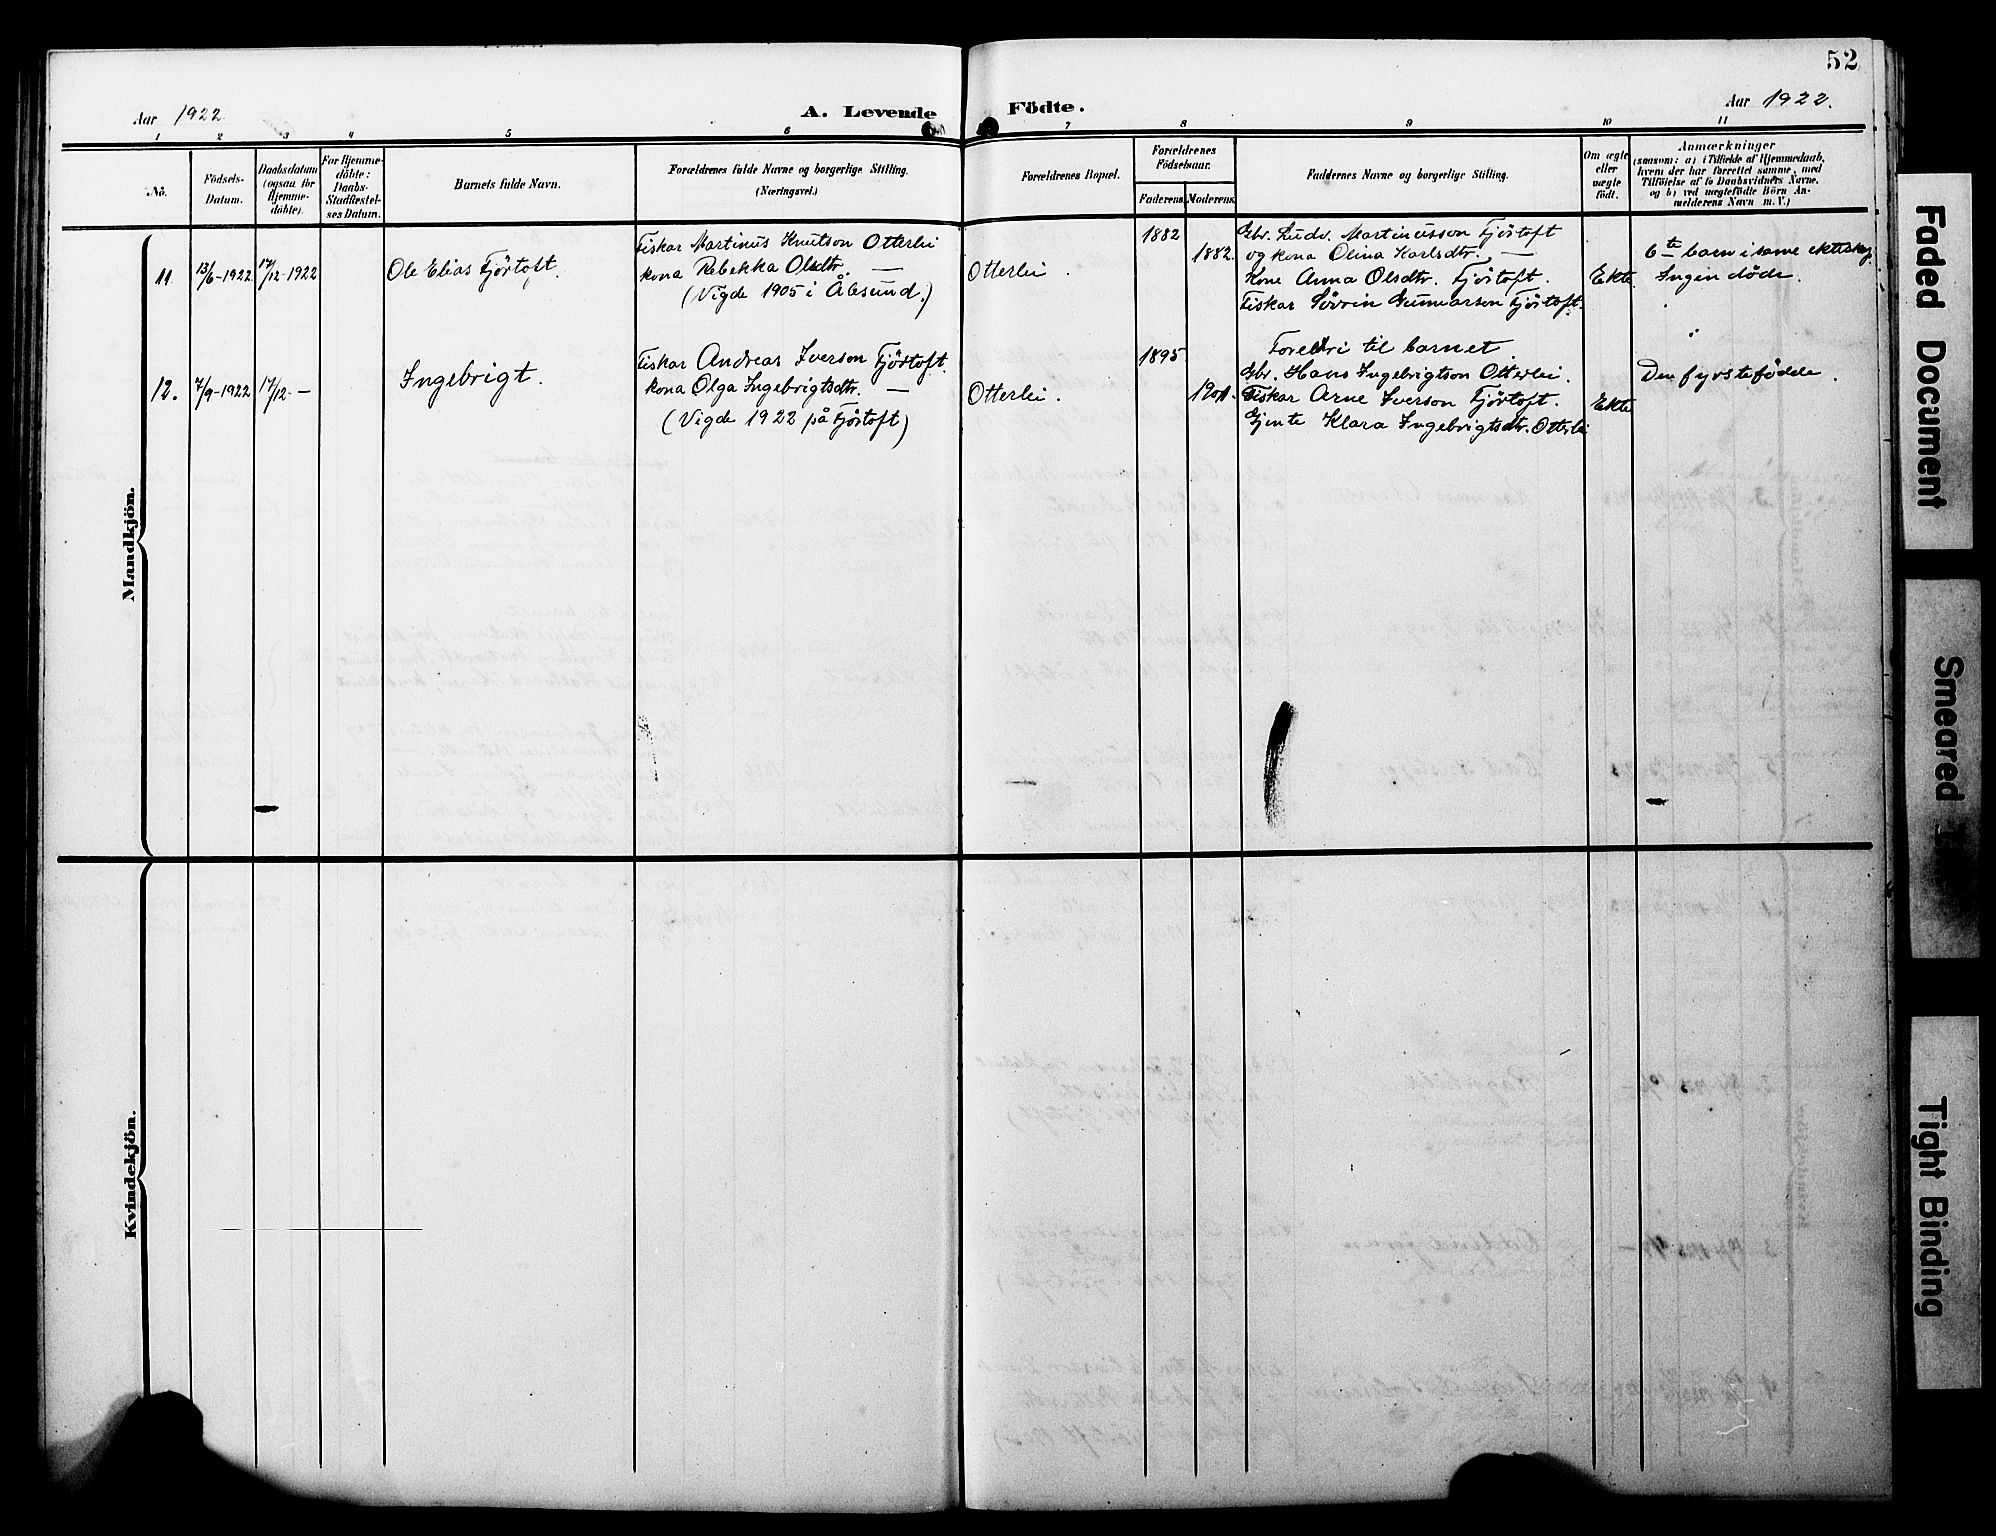 52
Aar 1922.
A. Levende Födte.
Aar 1922.
1 2 3 4 5 6 7 8 9 10 11
No.
Födsels-Datum.
Daabsdatum (ogsaa for Hjemme-döbte).
For Hjemme-döbte: Daabs-Stadfæstel-ses Datum.
Barnets fulde Navn.
Forældrenes fulde Navne og borgerlige Stilling. (Næringsvei.)
Forældrenes Bopæl.
Forældrenes Födselsaar.
Faderens. Moderens.
Faddernes Navne og borgerlige Stilling.
Om ægte eller uægte födt.
Anmærkninger
(saasom: a) i Tilfælde af Hjemmedaab,
hvem der har forrettet samme, med
Tilföielse af to Daabsvidners Navne,
og b) ved uægtefödte Börn An-
melderens Navn m. V.)
Mandkjön.
11. 13/6-1922 17/12-1922 Ole Elias Fjörtoft.
Fiskar Martinus Knutson Otterlei
kona Rebekka Olsdtr. —
(Vigde 1905 i Ålesund.)
Otterlei.
1882
1882.
Gbr. Ludv. Martinusson Fjörtoft
og kona Olina Karlsdtr. —
Kone Anna Olsdtr. Fjörtoft.
Fiskar Sövrin Gunnarson Fjörtoft.
Ekte
6te barn i same ekteskap.
Ingen döde.
12. 7/9-1922 17/12 — Ingebrigt.
Fiskar Andreas Iverson Fjörtoft.
kona Olga Ingebrigtsdtr. —
(Vigde 1922 på Fjörtoft)
Otterlei.
1895
1901.
Foreldri til barnet.
Gbr. Hans Ingebrigtson Otterlei.
Fiskar Arne Iverson Fjörtoft.
Gjente Klara Ingebrigtsdtr. Otterlei
Ekte
Den fyrstefödde.
Kvindekjön.
Faded Document
Smeared
Tight Binding